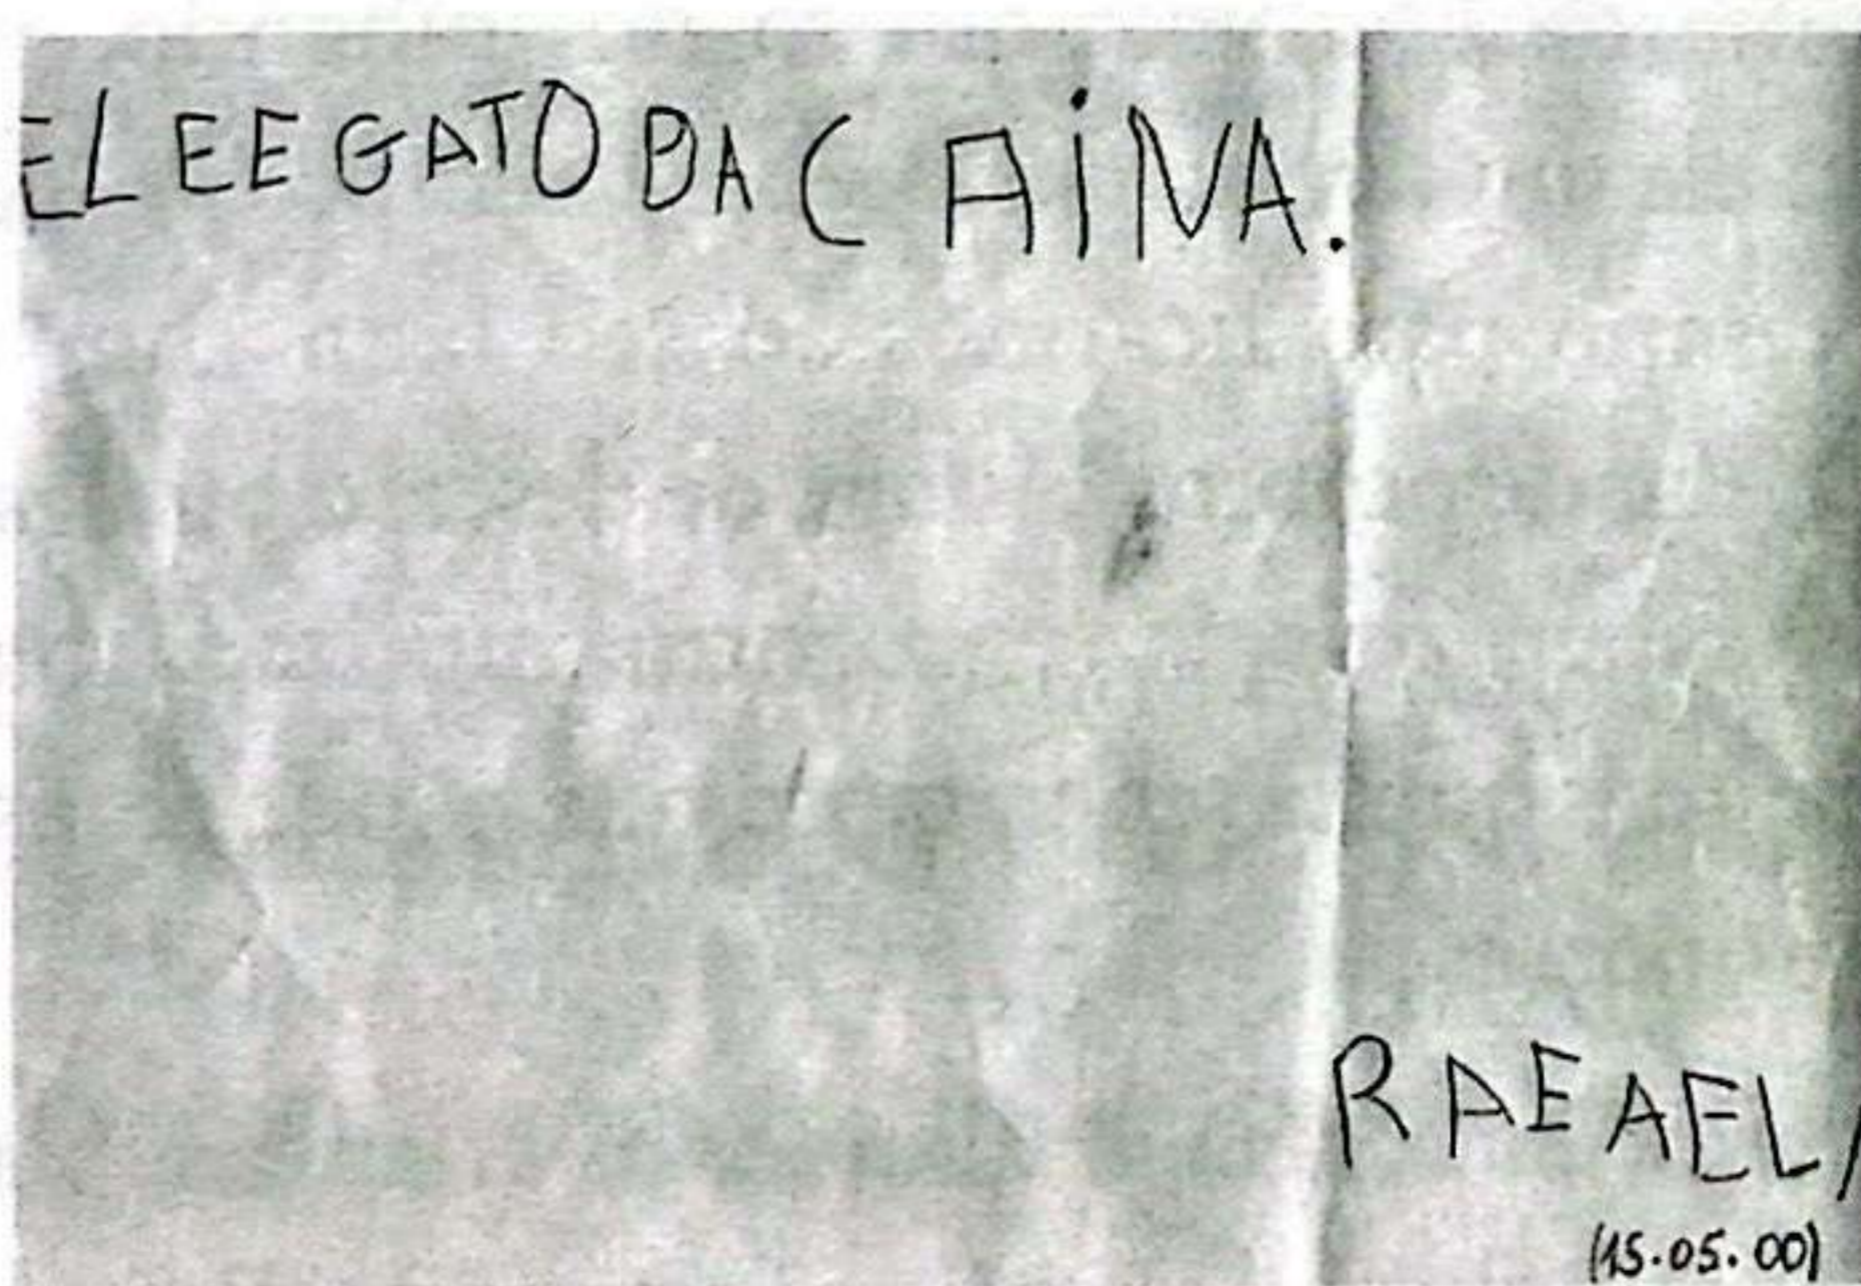 ELE E GATO DA CAINA.
RAEAEL
(15.05.00)